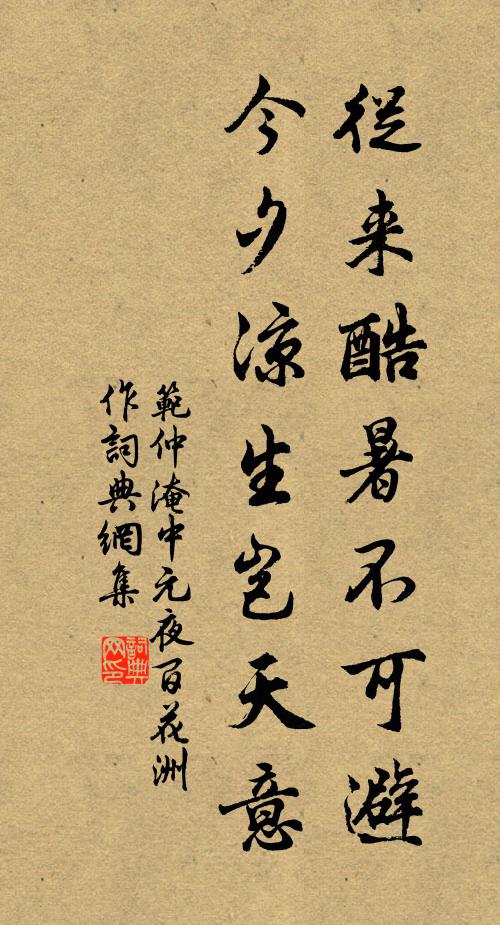 從来酷暑不可避
今夕凉生岂天意
範仲淹中元夜百花洲
作詞典網集
詞典
网印